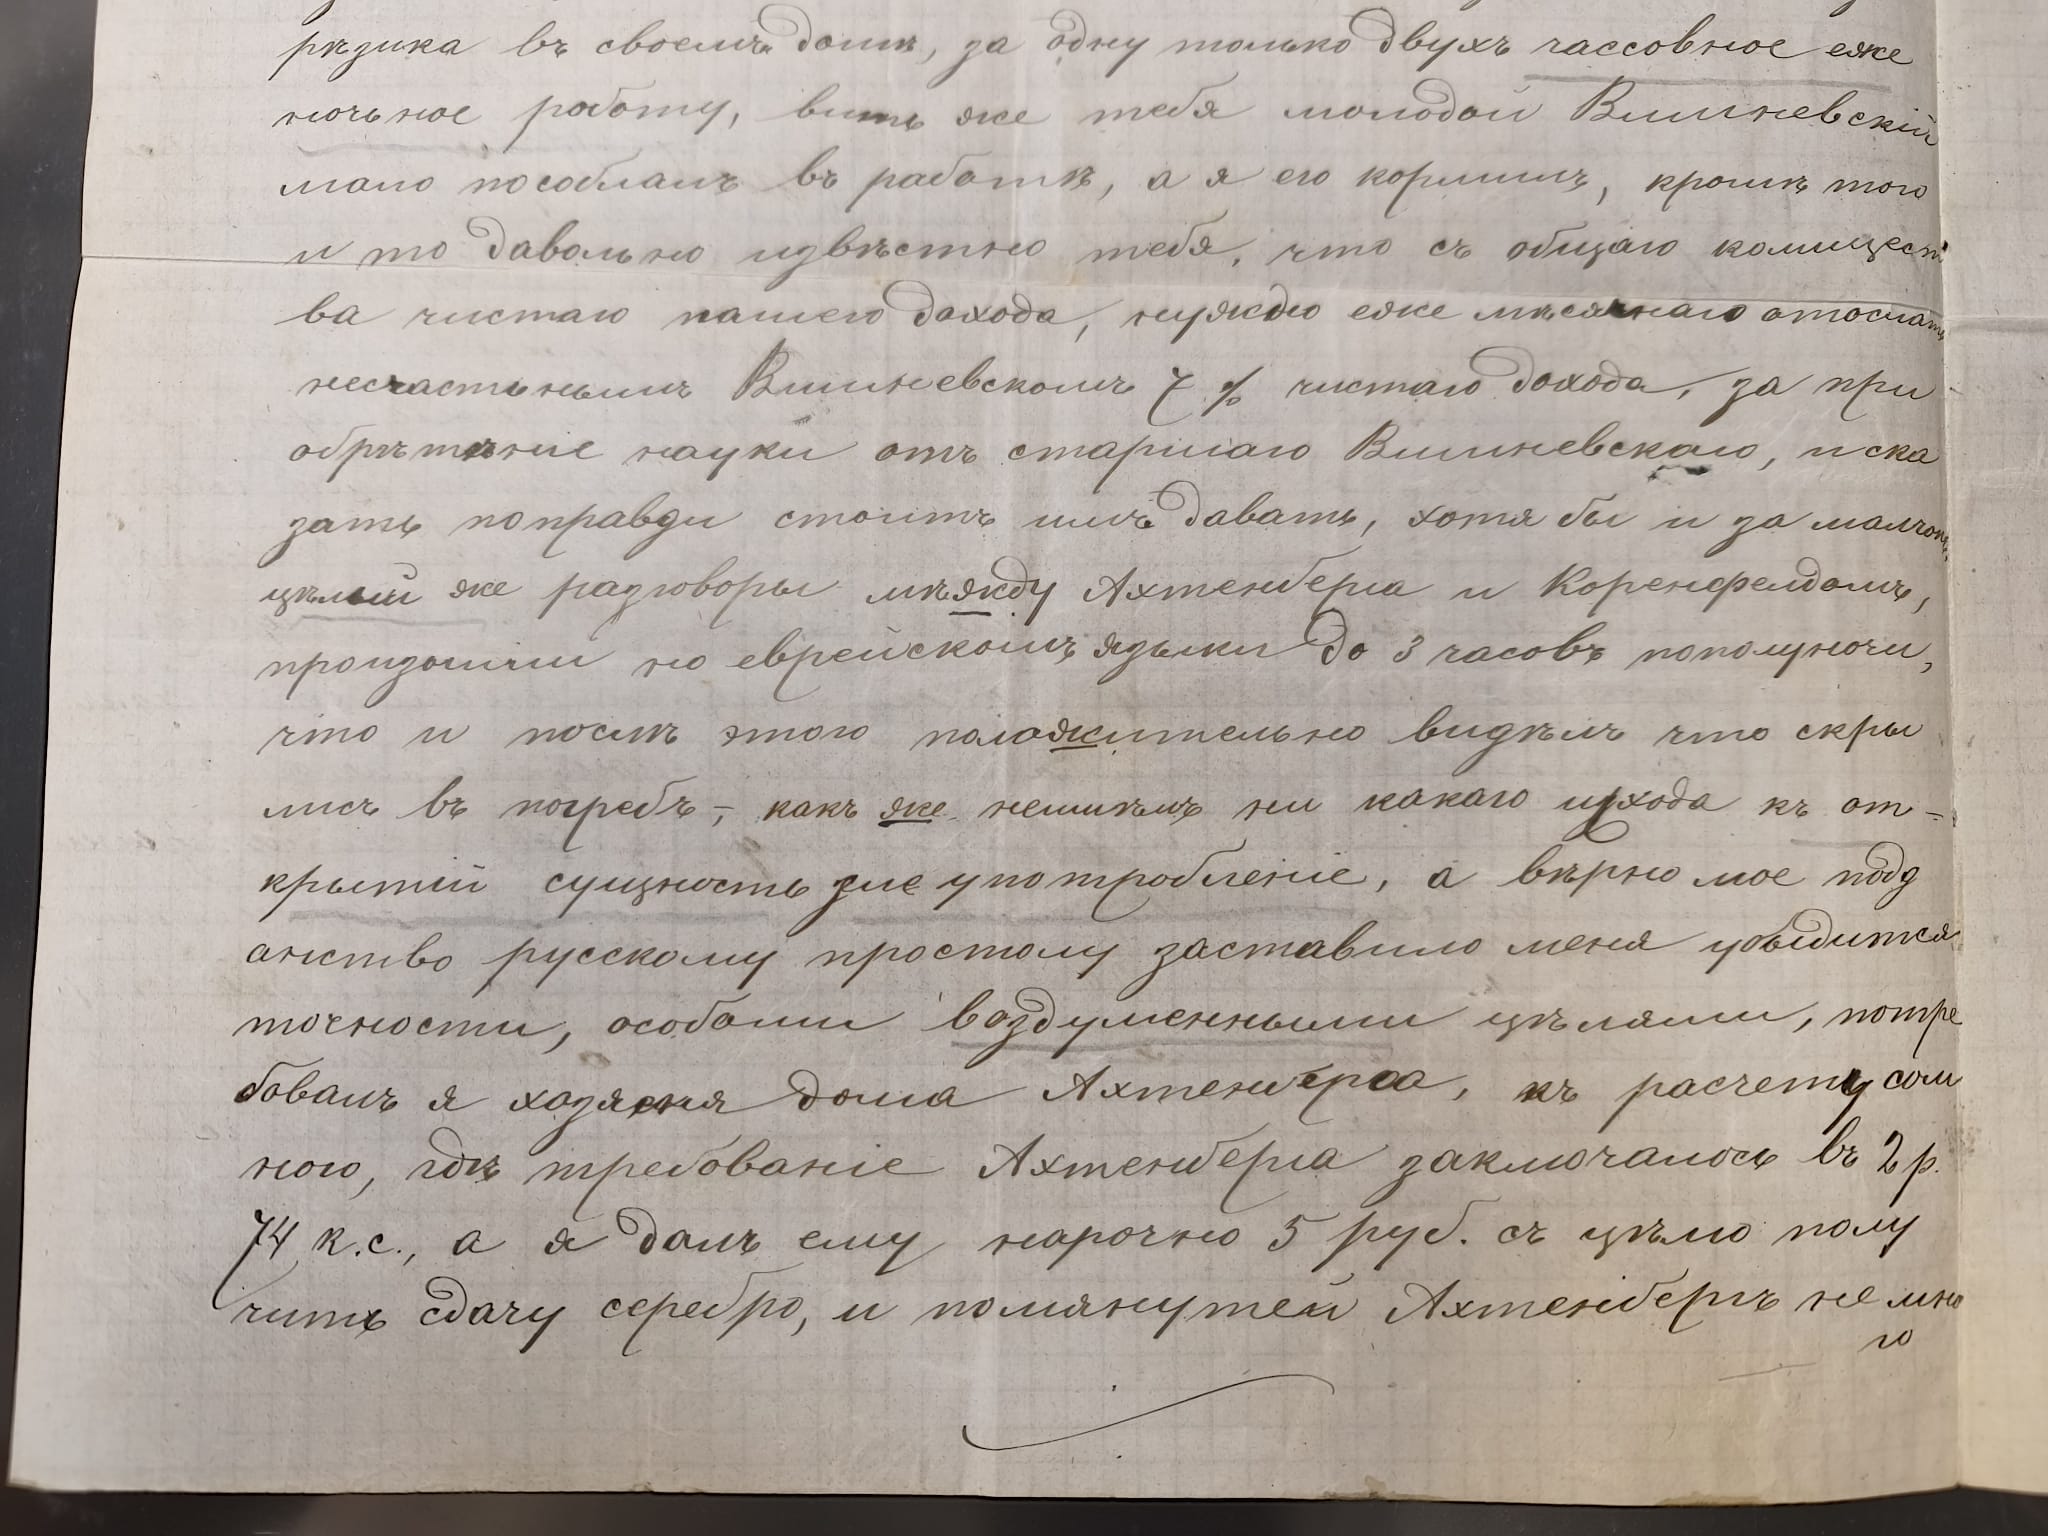 рѣзика въ своемъ домѣ, за одну только двухъ чассовное еже
ночьное роботу, вить же тебя молодой Вишневскій
мало пособлалъ въ работѣ, а я его кормилъ, кромѣ того
и то давольно извѣстно тебя, что съ общаго колищест
ва чистаго нашего дохода, нуждно еже мѣсячнаго отослать
несчастьнымъ Вишневскомъ 7 % чистаго дохода, за при
обрѣтѣніе науки отъ старшаго Вишневскаго, и ска
зать поправди стоитъ имъ давать, хотя бы и за малчок,
цѣлый же разговоры мѣжду Ахтенберга и Коренфелдомъ,
произошли но еврейскомъ языки до 3 часовъ пополуночи,
что и послѣ этого положительно видѣлъ что скры
лисъ въ погребъ, – какъ же неимѣлъ ни какаго исхода къ от-
крытій сущность зле употробленіе, а вѣрно мое подд
анство русскому простолу заставило меня убѣдится
точности, особыми воздуменными цѣлями, потре
бовалъ я хозяеня дома Ахтенберга, къ расчету сом
ною, гдѣ требованіе Ахтенберга заключалось въ 2 р.
74 к.с., а я далъ ему нарочно 5 руб. съ цѣлю полу
чить сдачу серебро, и помянутей Ахтенбергъ немно
го